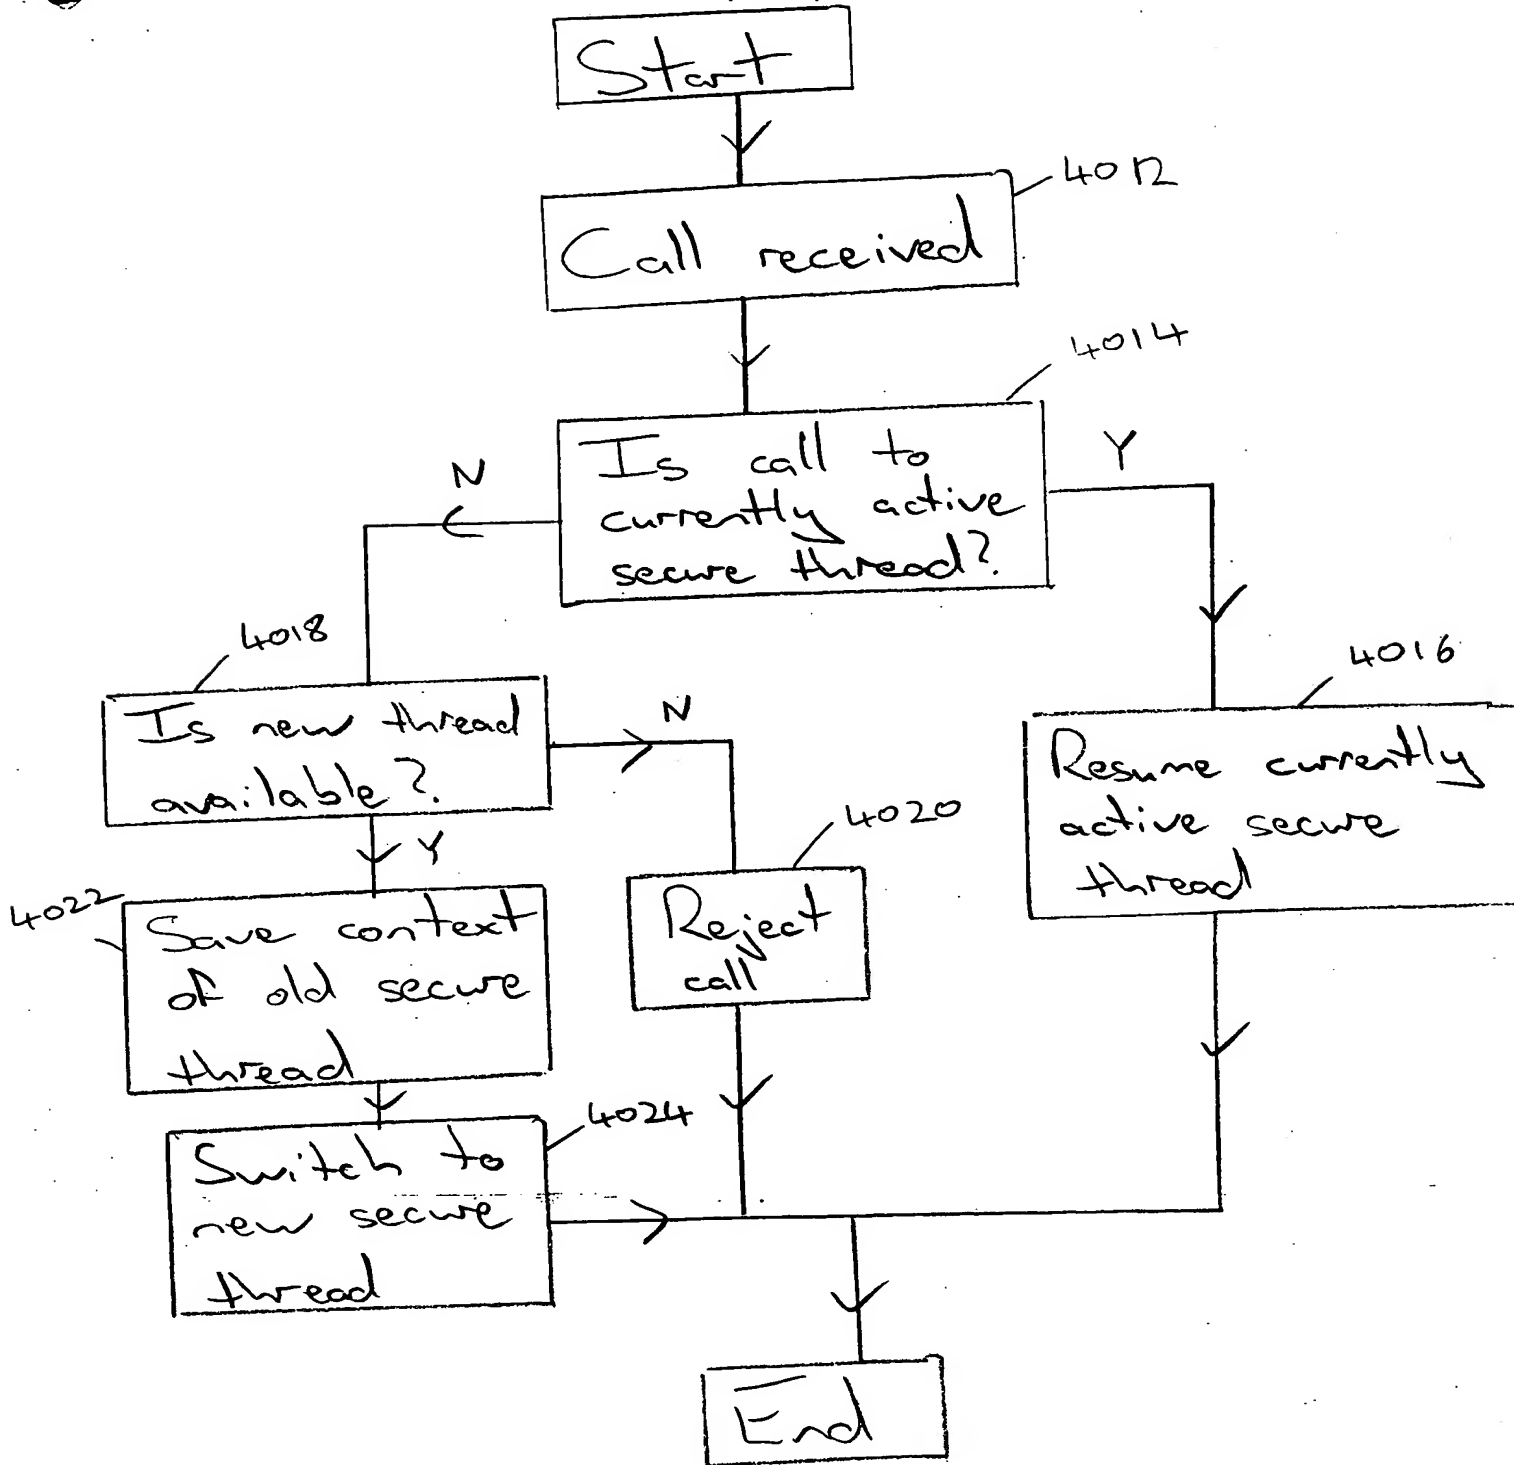 Start
4012
Call received
4014
Is call to
currently active
secure thread?
N
Y
4018
4016
Is new thread
available?
N
Resume currently
active secure
thread
4020
Y
4022
Save context
of old secure
thread
Reject
call
4024
Switch to
new secure
thread
End